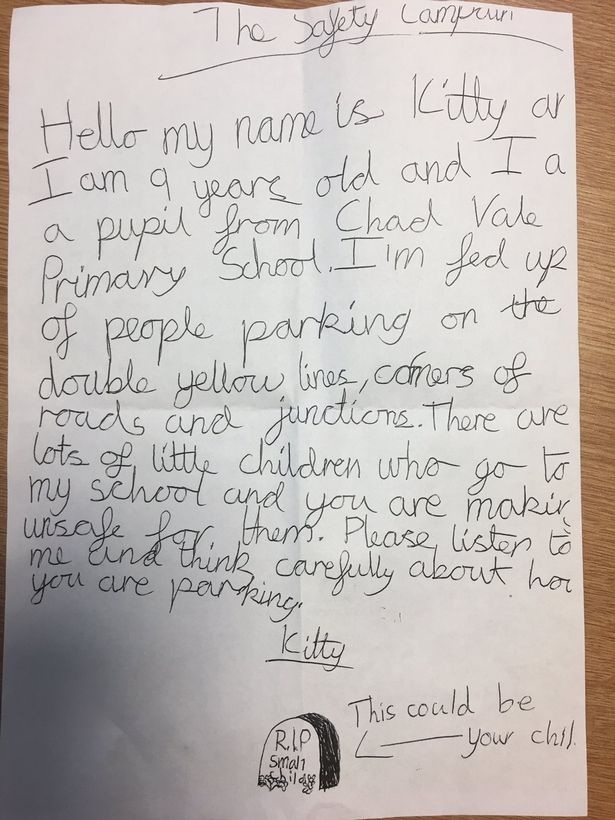 The Safety Campaign
Hello my name is Kitty an
I am 9 years old and I a
a pupil from Chad Vale
Primary School. I'm fed up
of people parking on the
double yellow lines, corners of
roads and junctions. There are
lots of little children who go to
my school and you are makin
unsafe for them. Please listen to
me and think carefully about ho
you are parking.
Kitty
This could be
your chil
R.I.P
small
child